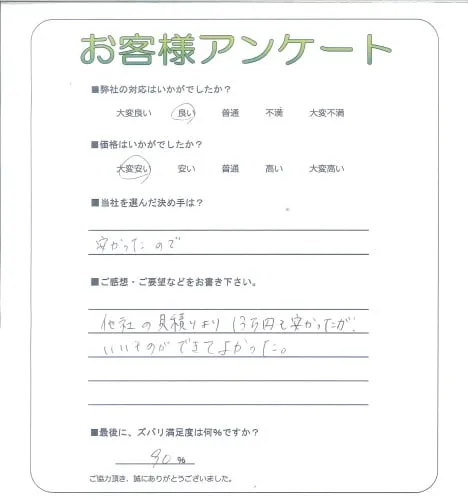 お客様アンケート
■弊社の対応はいかがでしたか?
大変良い 良い 普通 不満 大変不満
■価格はいかがでしたか?
大変安い 安い 普通 高い 大変高い
■当社を選んだ決め手は?
安かったので
■ご感想・ご要望などをお書き下さい。
他社の見積りより13万円も安かったが、
いいものができてよかった。
■最後に、ズバリ満足度は何%ですか?
90 %
ご協力頂き、誠にありがとうございました。